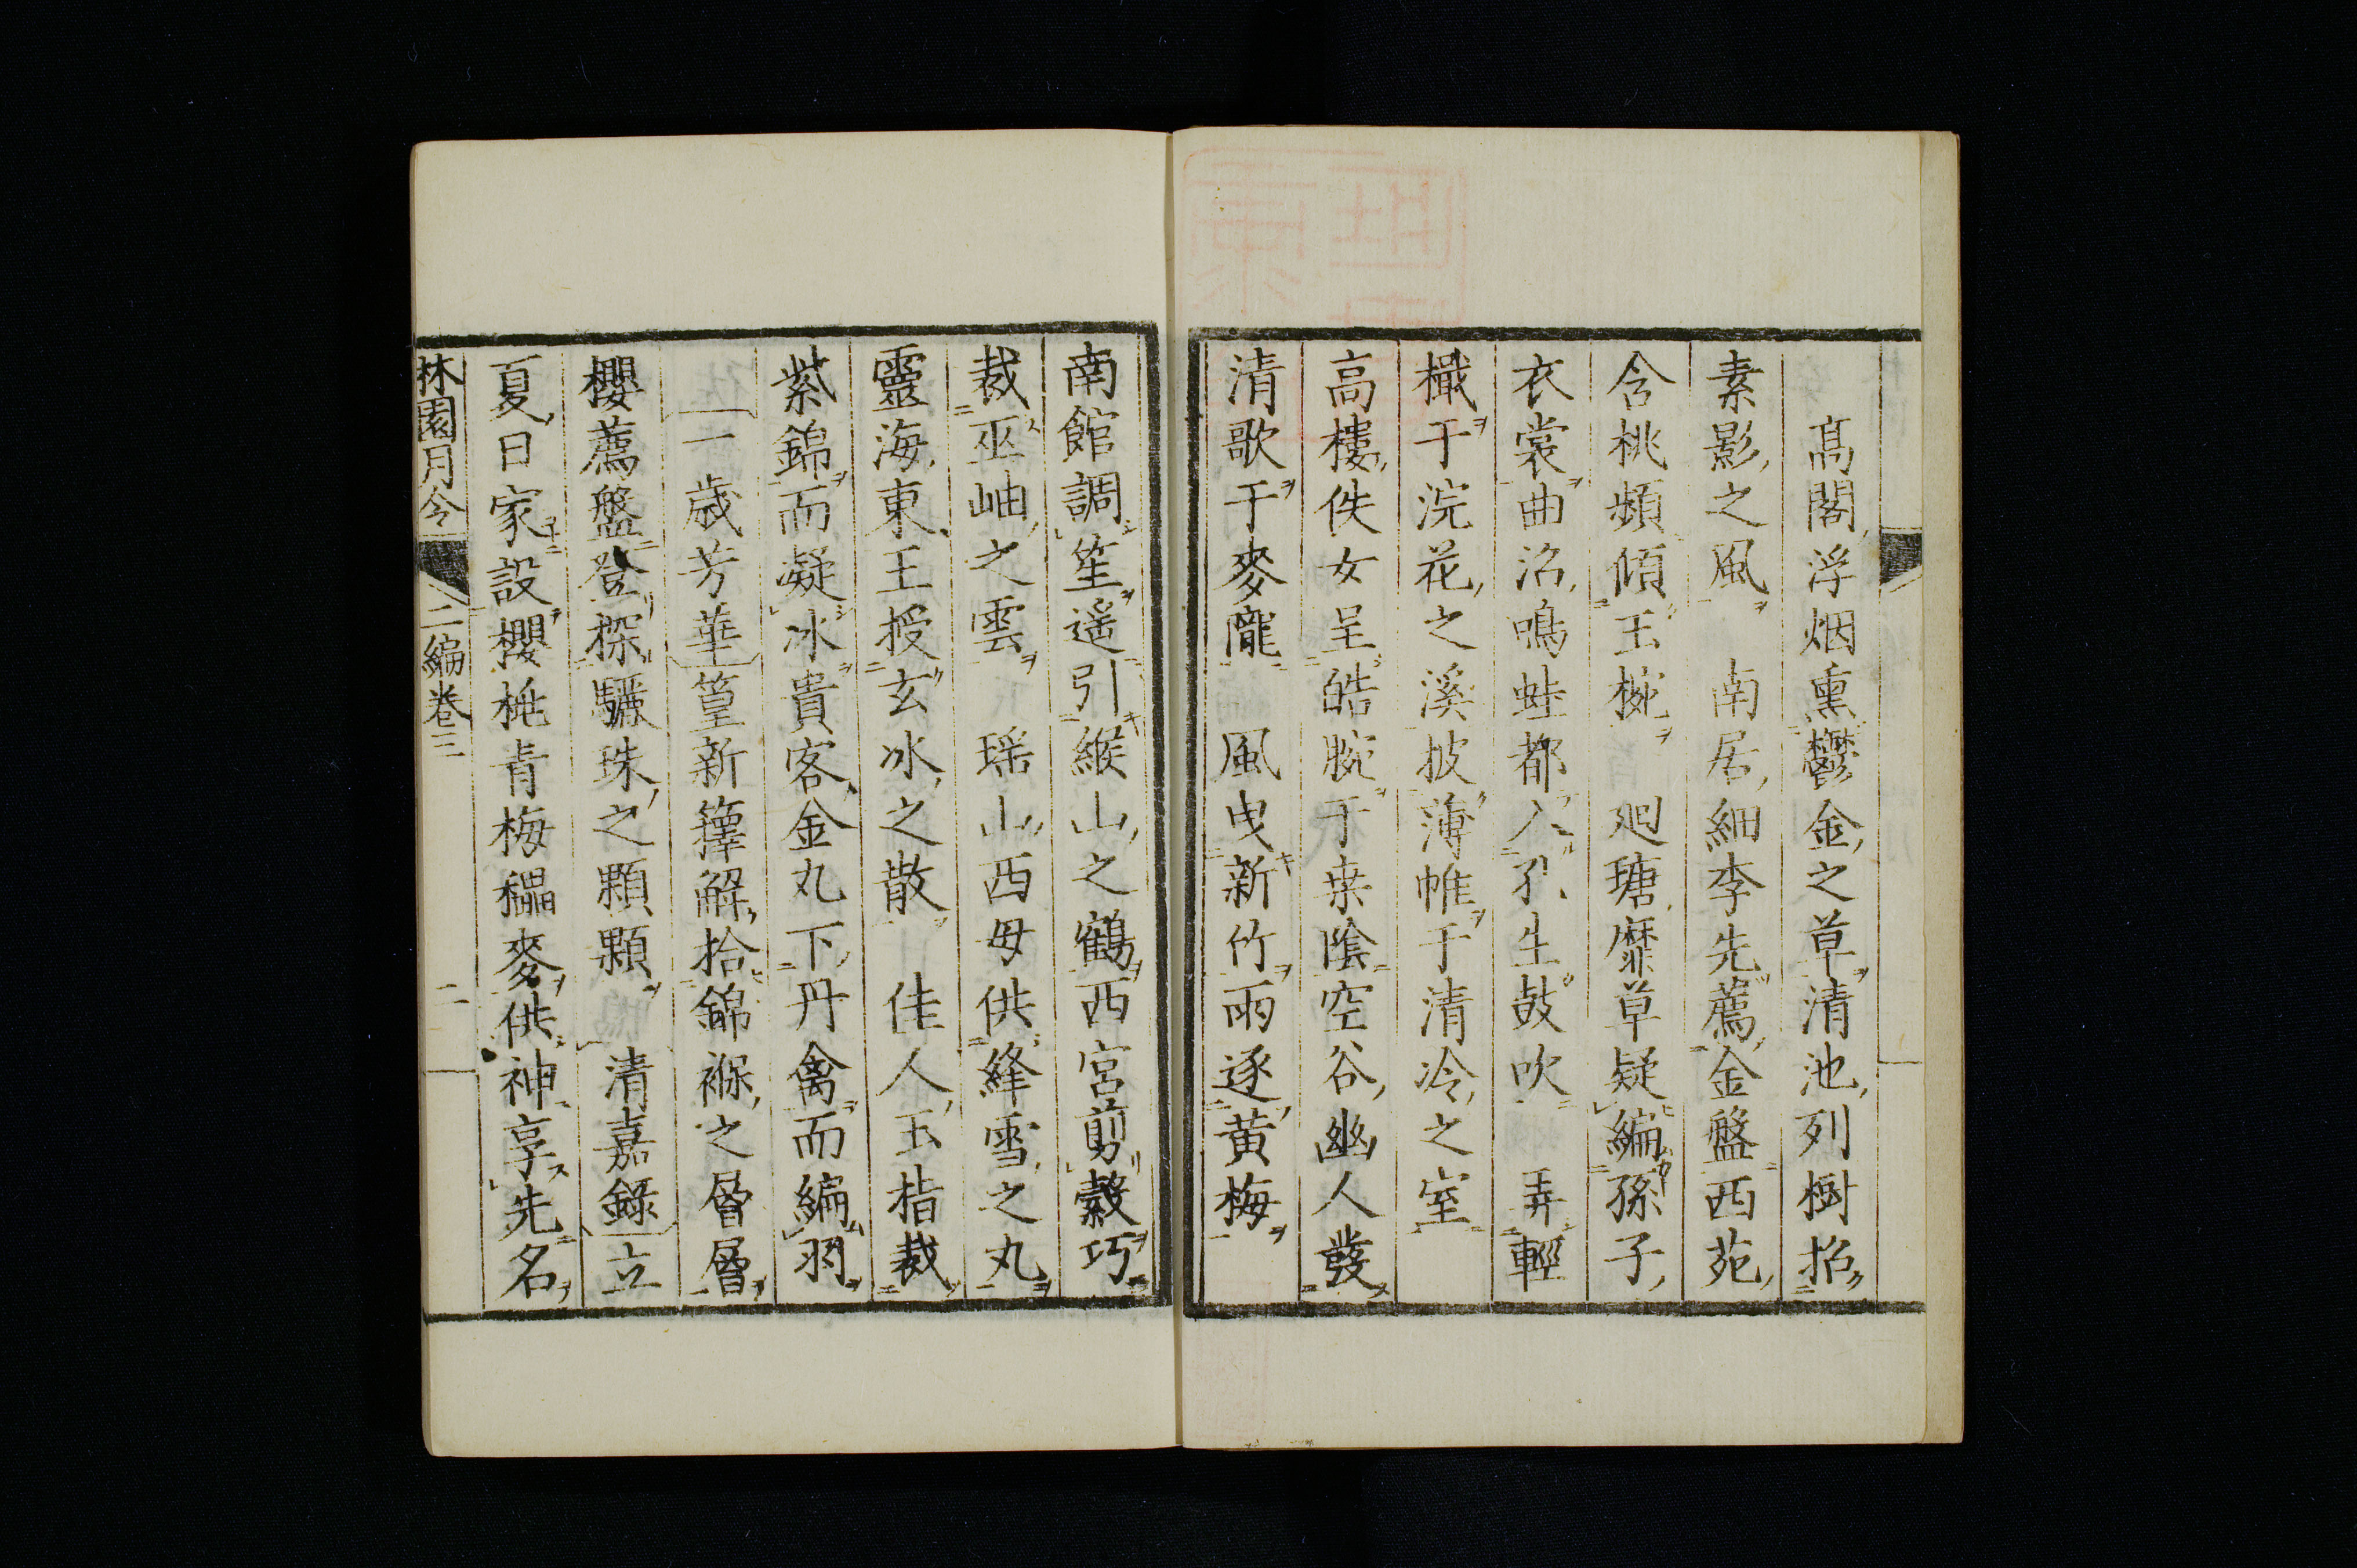 高閣浮烟熏鬱金之草清池列樹招
素影之風　南居細李先薦金盤西苑
含桃頻傾玉椀　廻瑭靡草疑編孫子
衣裳曲沼鳴蛙都入孔生鼓吹　弄輕
檝于浣花之溪披薄帷于清冷之室
高樓佚女呈皓腕于桒陰空谷幽人發
清歌于麥隴　風曳新竹雨逐黄梅
南館調笙遥引緱山之鶴西宮剪縠巧
裁巫岫之雲　瑶山西母供絳雪之丸
靈海東王授玄冰之散　佳人玉指裁
紫錦而凝冰貴客金丸下丹禽而編羽
一歳芳華篁新籜解拾錦褓之層層
櫻薦盤登探驪珠之顆顆　清嘉錄立
夏日家設櫻桃青梅䆀麥供神享先名
林園月令　二編卷三　二